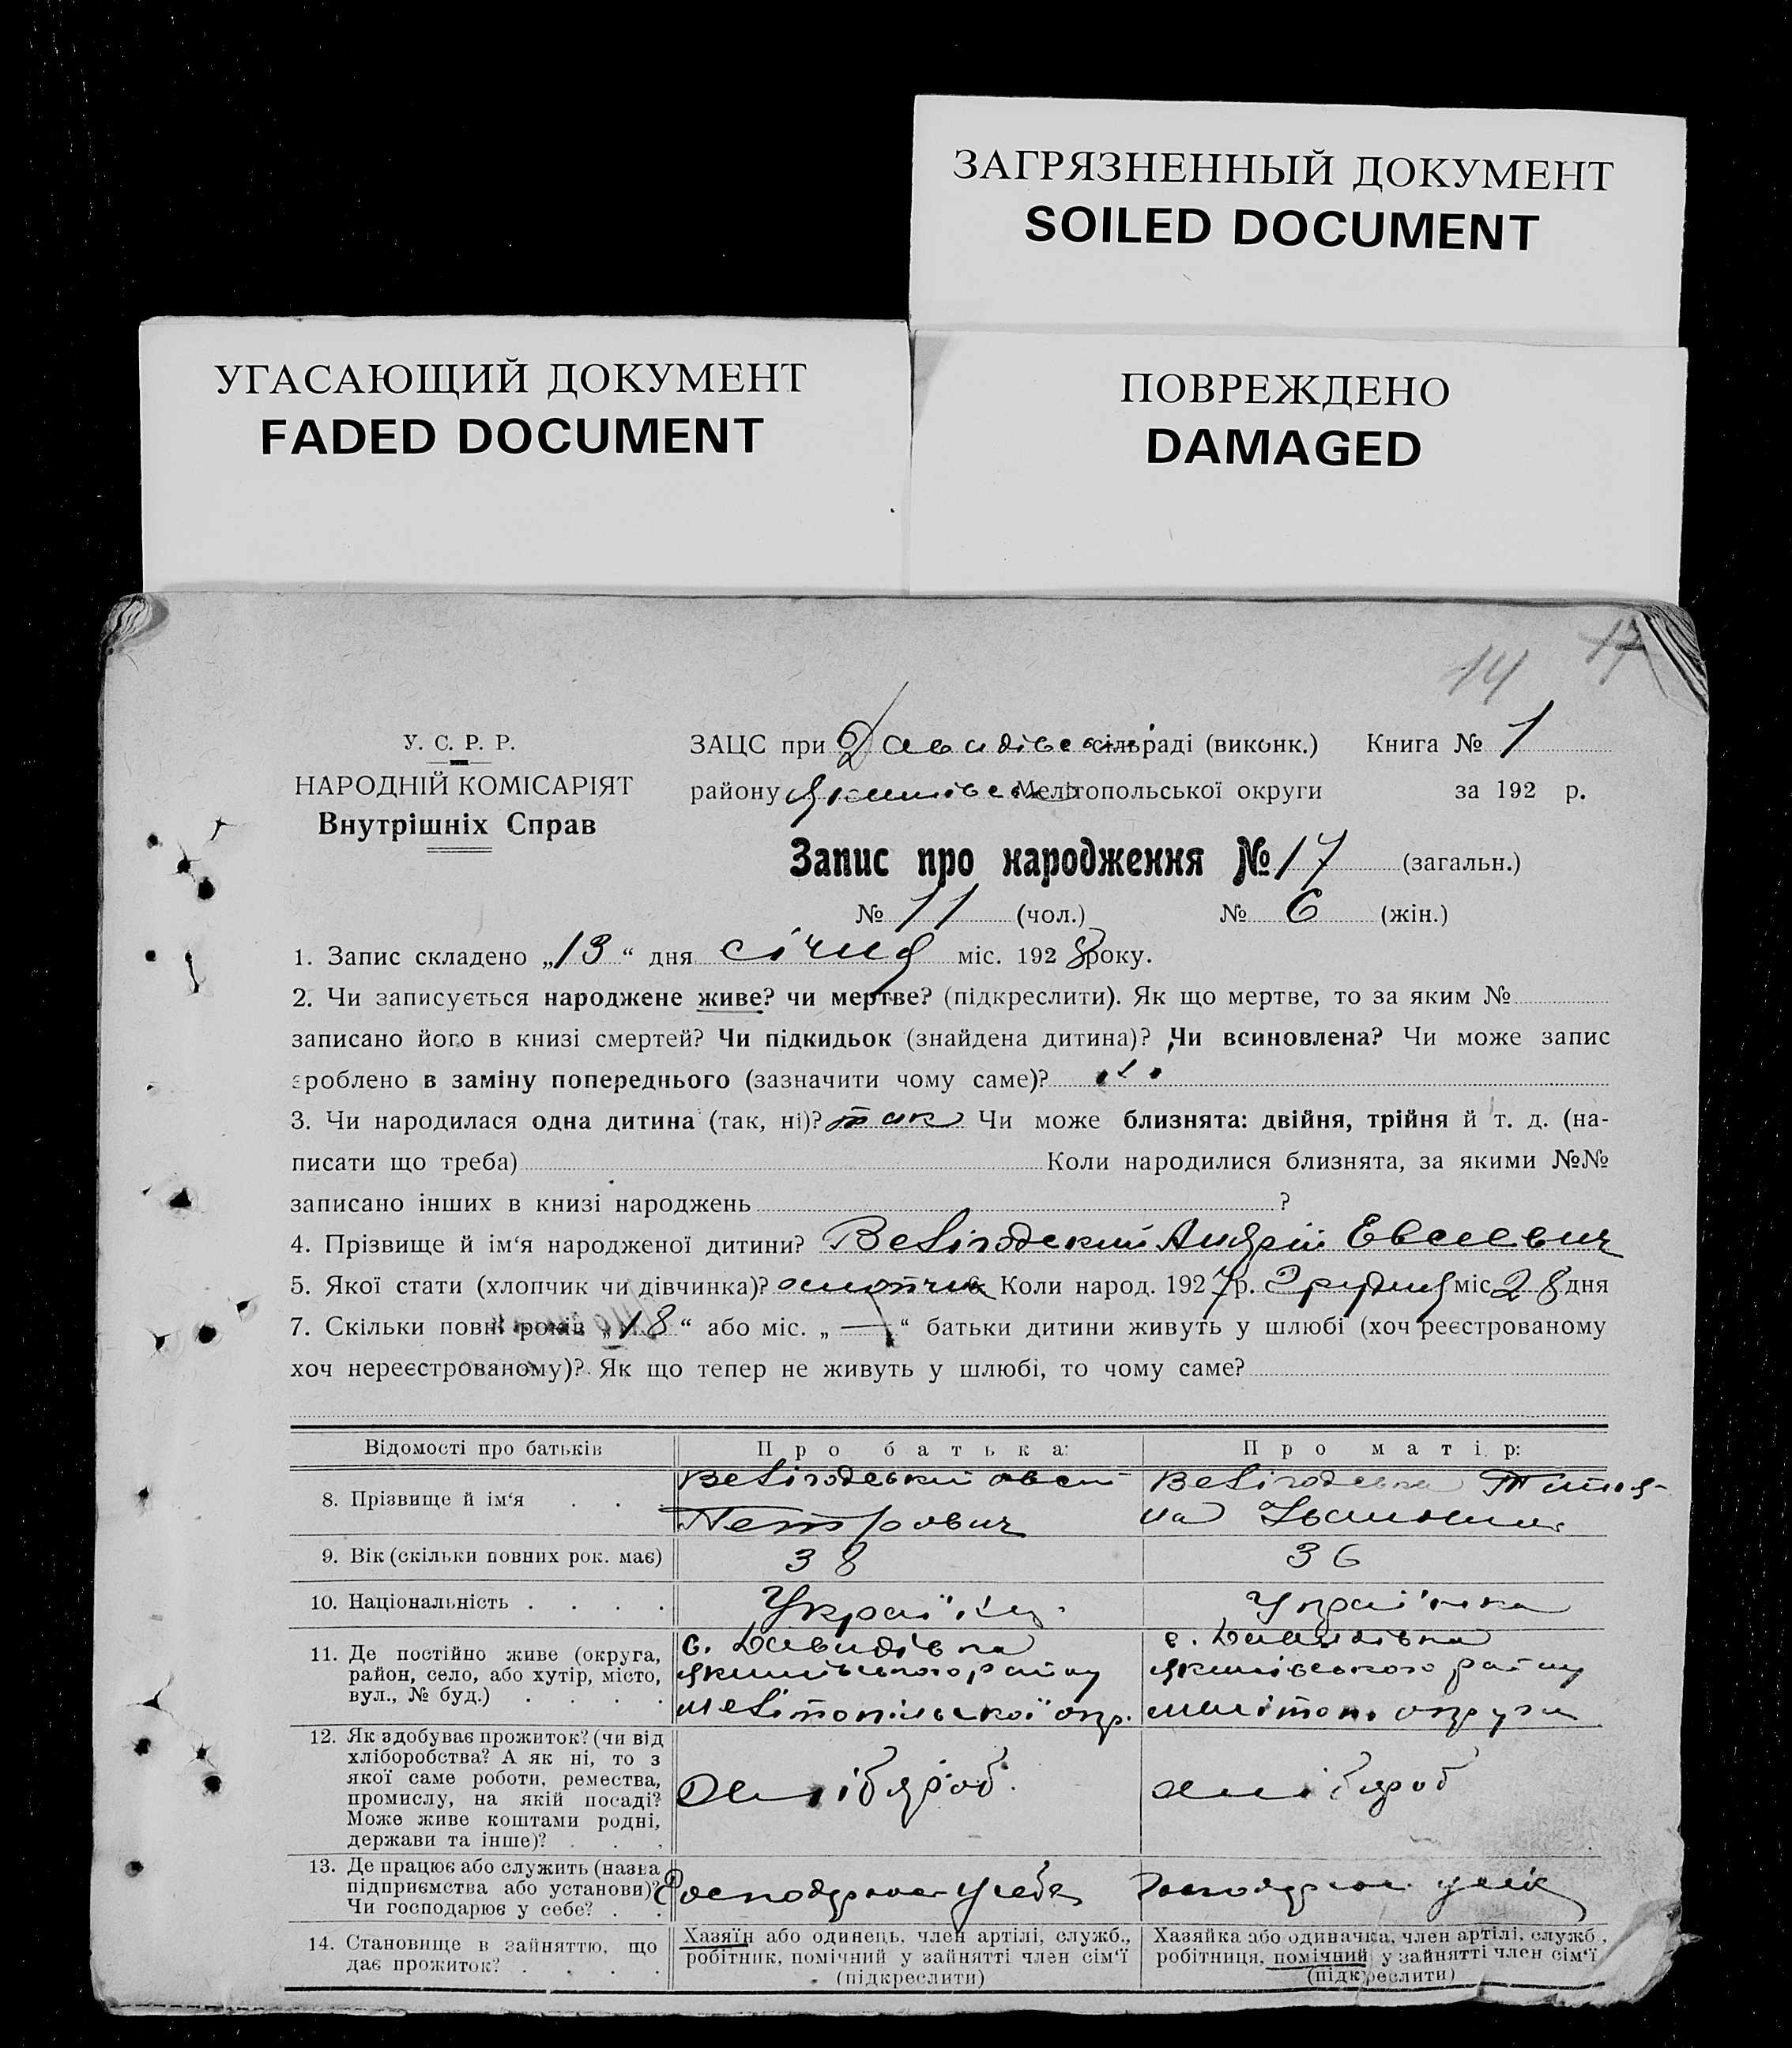 ЗАГРЯЗНЕННЫЙ ДОКУМЕНТ
SOILED DOCUMENT
УГАСАЮЩИЙ ДОКУМЕНТ
FADED DOCUMENT
ПОВРЕЖДЕНО
DAMAGED
14 17
У. С. Р. Р.
НАРОДНІЙ КОМІСАРІЯТ
Внутрішніх Справ
ЗАЦС при Давидівськ. сільраді (виконк.) Книга № 1
району Якимівськ Мелітопольської округи за 192 р.
Запис про народження № 17 (загальн.)
№ 11 (чол.) № 6 (жін.)
1. Запис складено „13“ дня січня міс. 1928 року.
2. Чи записується народжене живе? чи мертве? (підкреслити). Як що мертве, то за яким №
записано його в книзі смертей? Чи підкидьок (знайдена дитина)? Чи всиновлена? Чи може запис
зроблено в заміну попереднього (зазначити чому саме)?
3. Чи народилася одна дитина (так, ні)? так Чи може близнята: двійня, трійня й т. д. (на-
писати що треба) Коли народилися близнята, за якими №№
записано інших в книзі народжень ?
4. Прізвище й ім‘я народженої дитини? Велігодський Андрій Евсеевич
5. Якої стати (хлопчик чи дівчинка)? хлопчик Коли народ. 1927 р. Грудня міс. 28 дня
7. Скільки повні років „18“ або міс. „—“ батьки дитини живуть у шлюбі (хоч реєстрованому
хоч нереєстрованому)? Як що тепер не живуть у шлюбі, то чому саме?
Відомості про батьків Про батька: Про матір:
8. Прізвище й ім‘я . . . Велігодський Овсій Петрович Велігодська Тетяна Іванівна
9. Вік (скільки повних рок. має) 38 36
10. Національність . . . . Українц. Українка
11. Де постійно живе (округа,
район, село, або хутір, місто,
вул., № буд.) . . . .
с. Давидівка
Якимівського району
Мелітопільської окр.
с. Давидівка
Якимівського району
Мелітоп. округи
12. Як здобуває прожиток? (чи від
хліборобства? А як ні, то з
якої саме роботи, ремества,
промислу, на якій посаді?
Може живе коштами родні,
держави та інше)? . . .
Хлібороб. хлібороб
13. Де працює або служить (назва
підприємства або установи)?
Чи господарює у себе? . .
Господарює у себе Господарює у себе
14. Становище в зайняттю, що
дає прожиток? . . . .
Хазяїн або одинець, член артілі, служб.,
робітник, помічний у зайнятті член сім‘ї
(підкреслити)
Хазяйка або одиначка, член артілі, служб.,
робітниця, помічний у зайнятті член сім‘ї
(підкреслити)